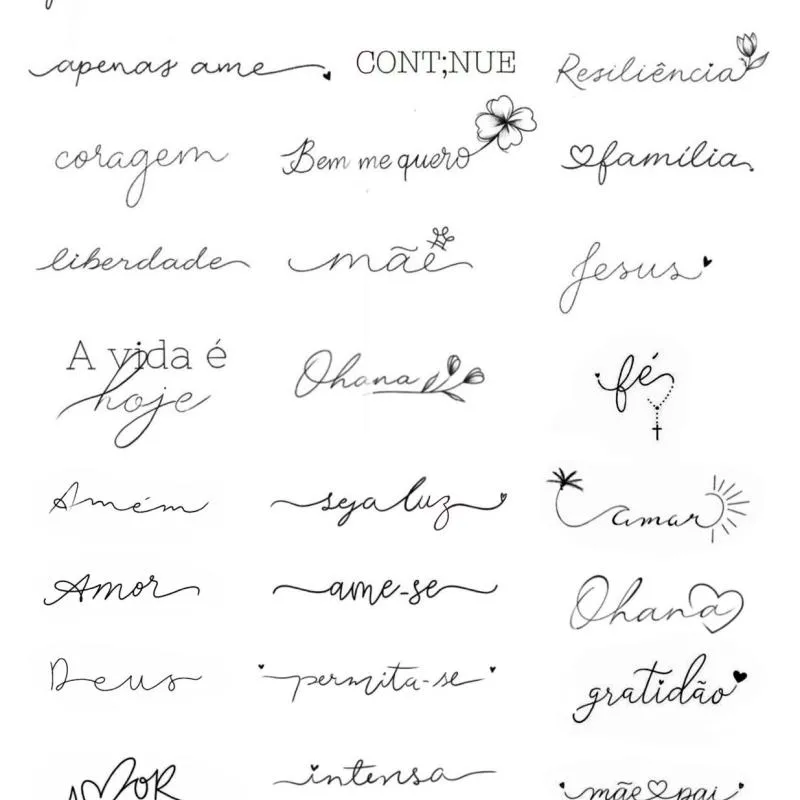 apenas ame
CONT;NUE
Resiliência
coragem
Bem me quero
família
liberdade
mãe
Jesus
A vida é
hoje
Ohana
fé
Amém
seja luz
amar
Amor
ame-se
Ohana
Deus
permita-se
gratidão
AMOR
intensa
mãe pai